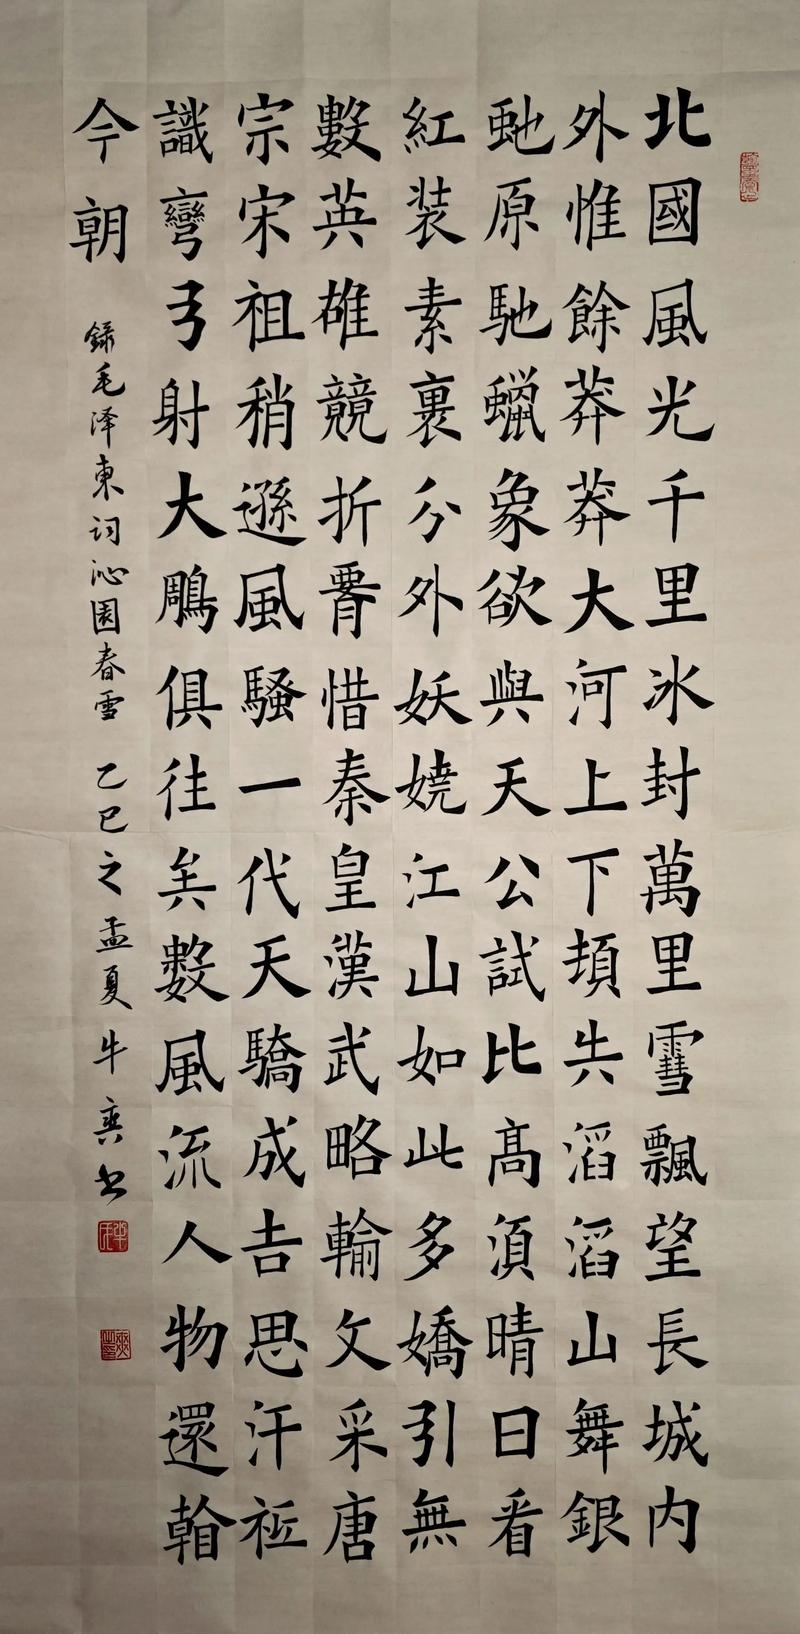 北國風光千里冰封萬里雪飄望長城内
外惟餘莽莽大河上下頓失滔滔山舞銀
虵原馳蠟象欲與天公試比髙須晴日看
紅装素裹分外妖嬈江山如此多嬌引無
數英雄競折腰惜秦皇漢武略輸文采唐
宗宋祖稍遜風騷一代天驕成吉思汗祗
識彎弓射大鵰俱往矣數風流人物還看
今朝
録毛泽東词沁園春雪 乙巳之孟夏 牛爽书